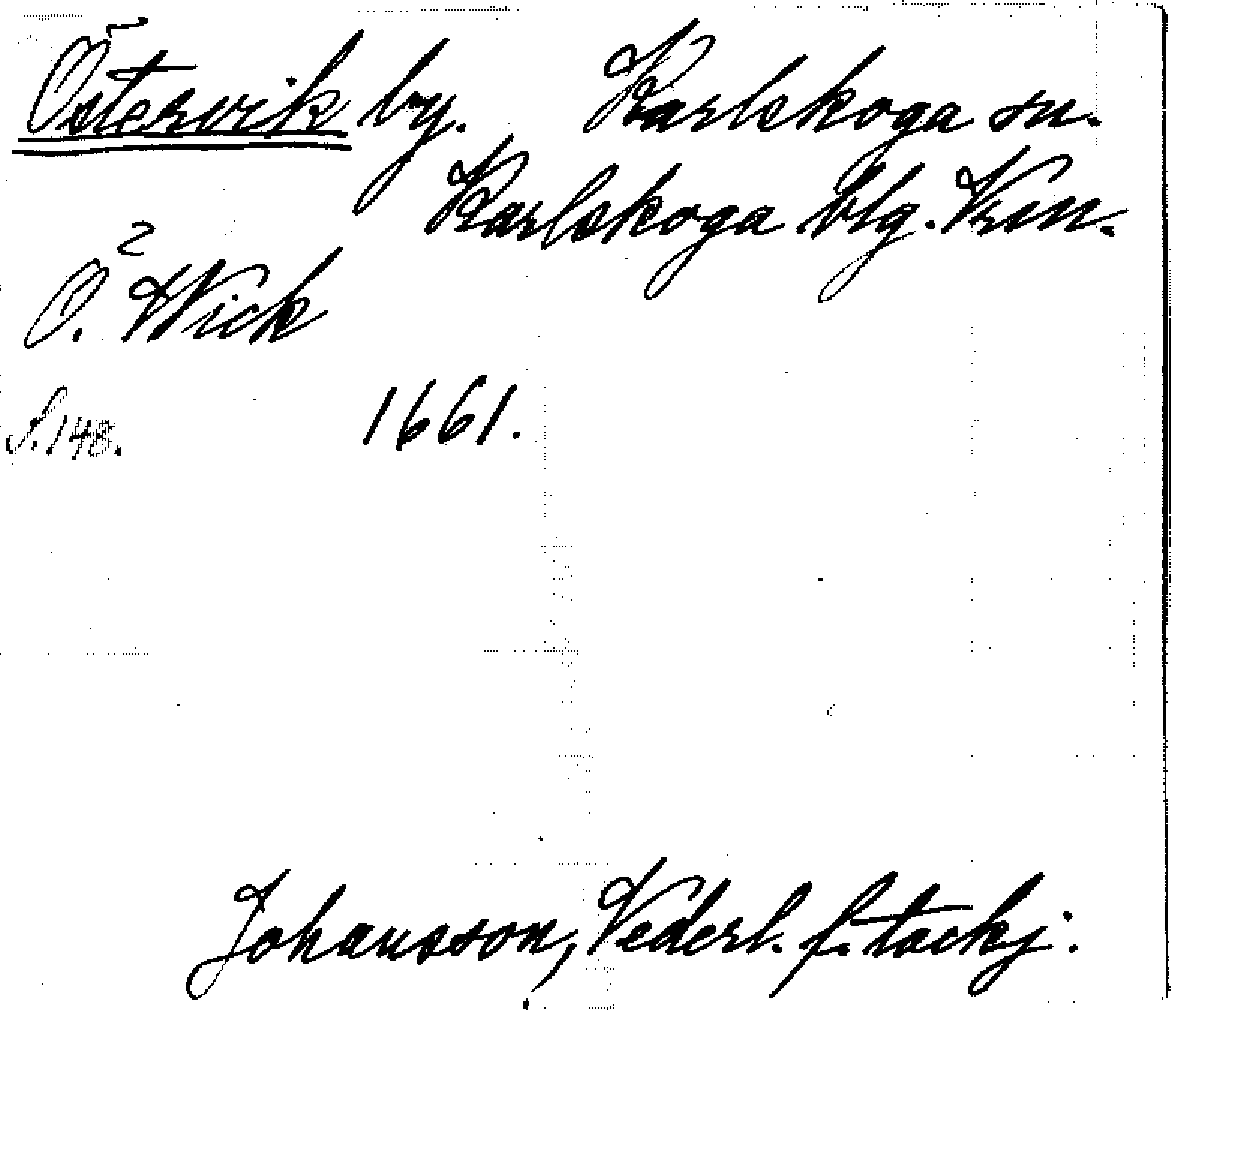 Östervik by. Karlskoga sn.
Karlskoga blg. Vrm.
Ö. Wick
S. 148. 1661.
Johansson, Vederl. f. tackj.